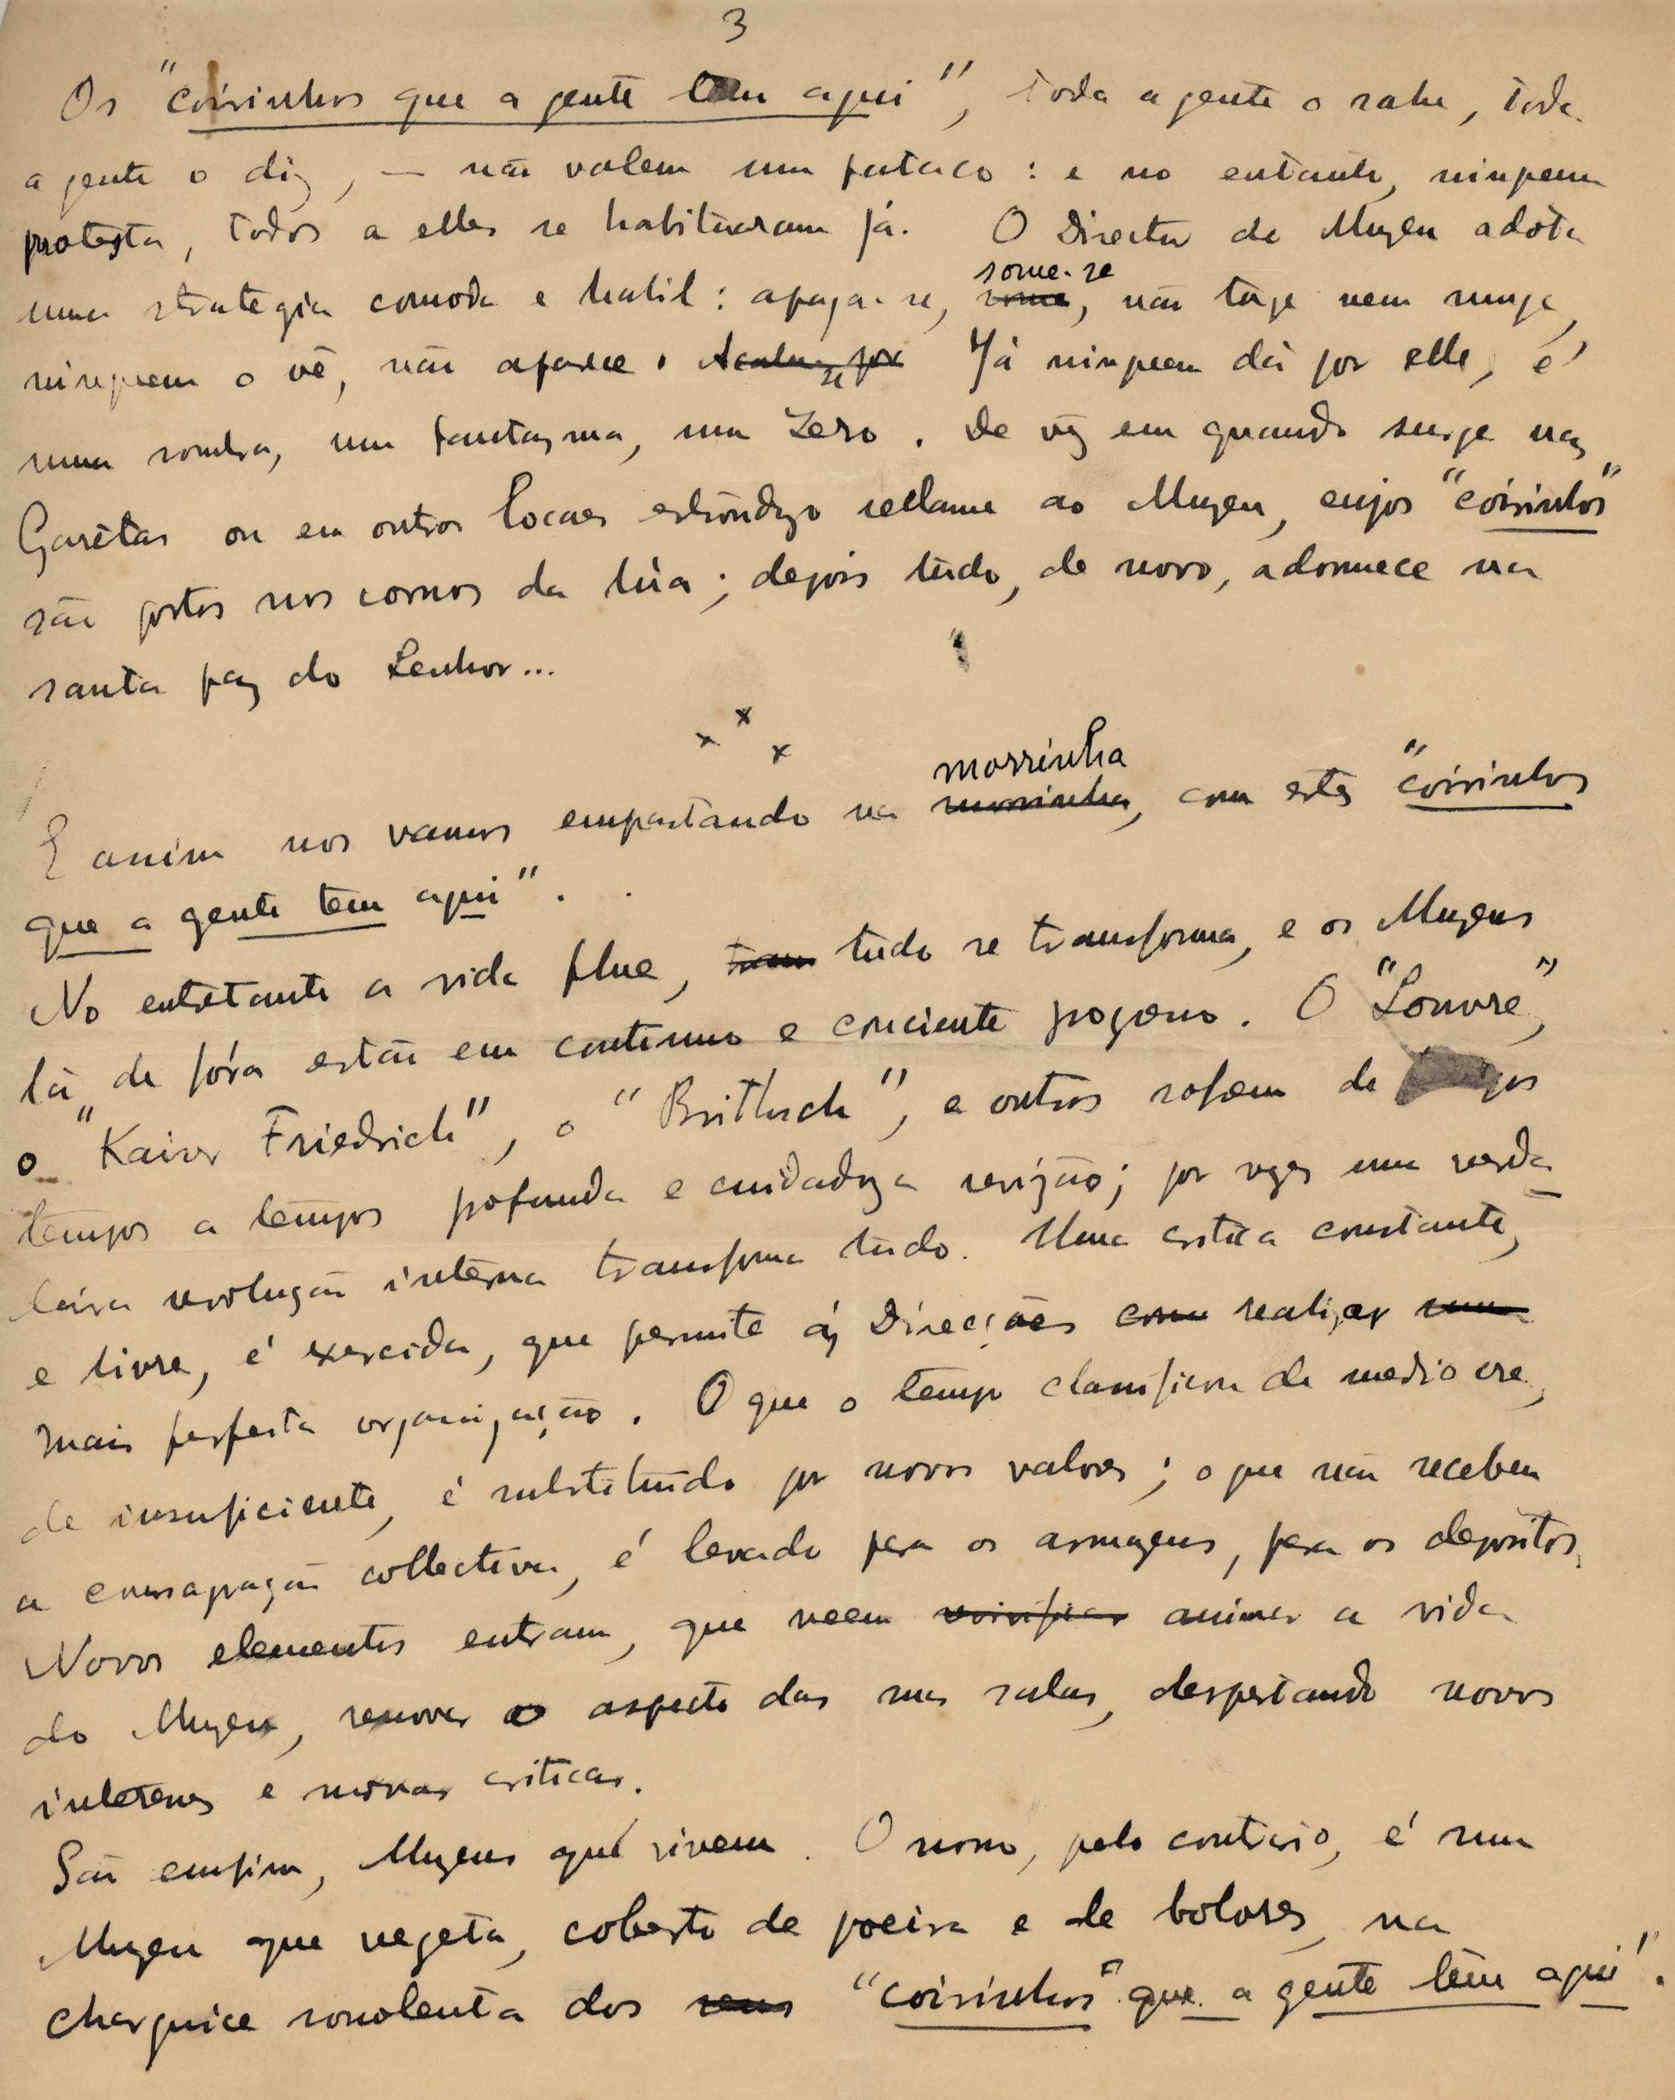 3
Os "coisinhos que a gente tem aqui", toda a gente o sabe, toda
a gente o diz, — não valem um pataco: e no entanto, ninguem
protesta, todos a elles se habituaram já. O Director do Muzeu adóta
uma strategia comoda e habil: apaga-se, some-se, não tuge nem muge,
ninguem o vê, não aparece. Já ninguem dá por elle, é
uma sombra, um fantasma, um Zero. De vez em quando surge nas
Gazêtas ou em outros locaes estrondozo reclame ao Muzeu, cujos "coisinhos"
são postos nos cornos da lúa; depois tudo, de novo, adormece na
santa paz do Senhor...
x x x
E assim nos vamos empastando na morrinha, com estes "coisinhos
que a gente tem aqui".
No entretanto a vida flue, tudo se transforma, e os Muzeus
lá de fóra estão em continuo e conciente progresso. O "Louvre",
o "Kaiser Friedrich", o "Brithsch", e outros sofrem de tempos
tempos a tempos profunda e cuidadoza revizão; por vezes uma verda-
deira revolução interna transforma tudo. Uma critica constante,
e livre, é exercida, que permite ás Direcções realizar
mais perfeita organização. O que o tempo classificou de mediocre,
de insuficiente, é substituido por novos valores; o que não recebeu
a consagração collectiva, é levado para os armazens, para os depositos.
Novos elementos entram, que veem animar a vida
do Muzeu, renovar o aspecto das suas salas, despertando novos
interesses e novas criticas.
São emfim, Muzeus que vivem. O nosso, pelo contrario, é um
Muzeu que vegeta, coberto de poeira e de bolores, na
charquice sonolenta dos "coisinhos" que a gente têm aqui".